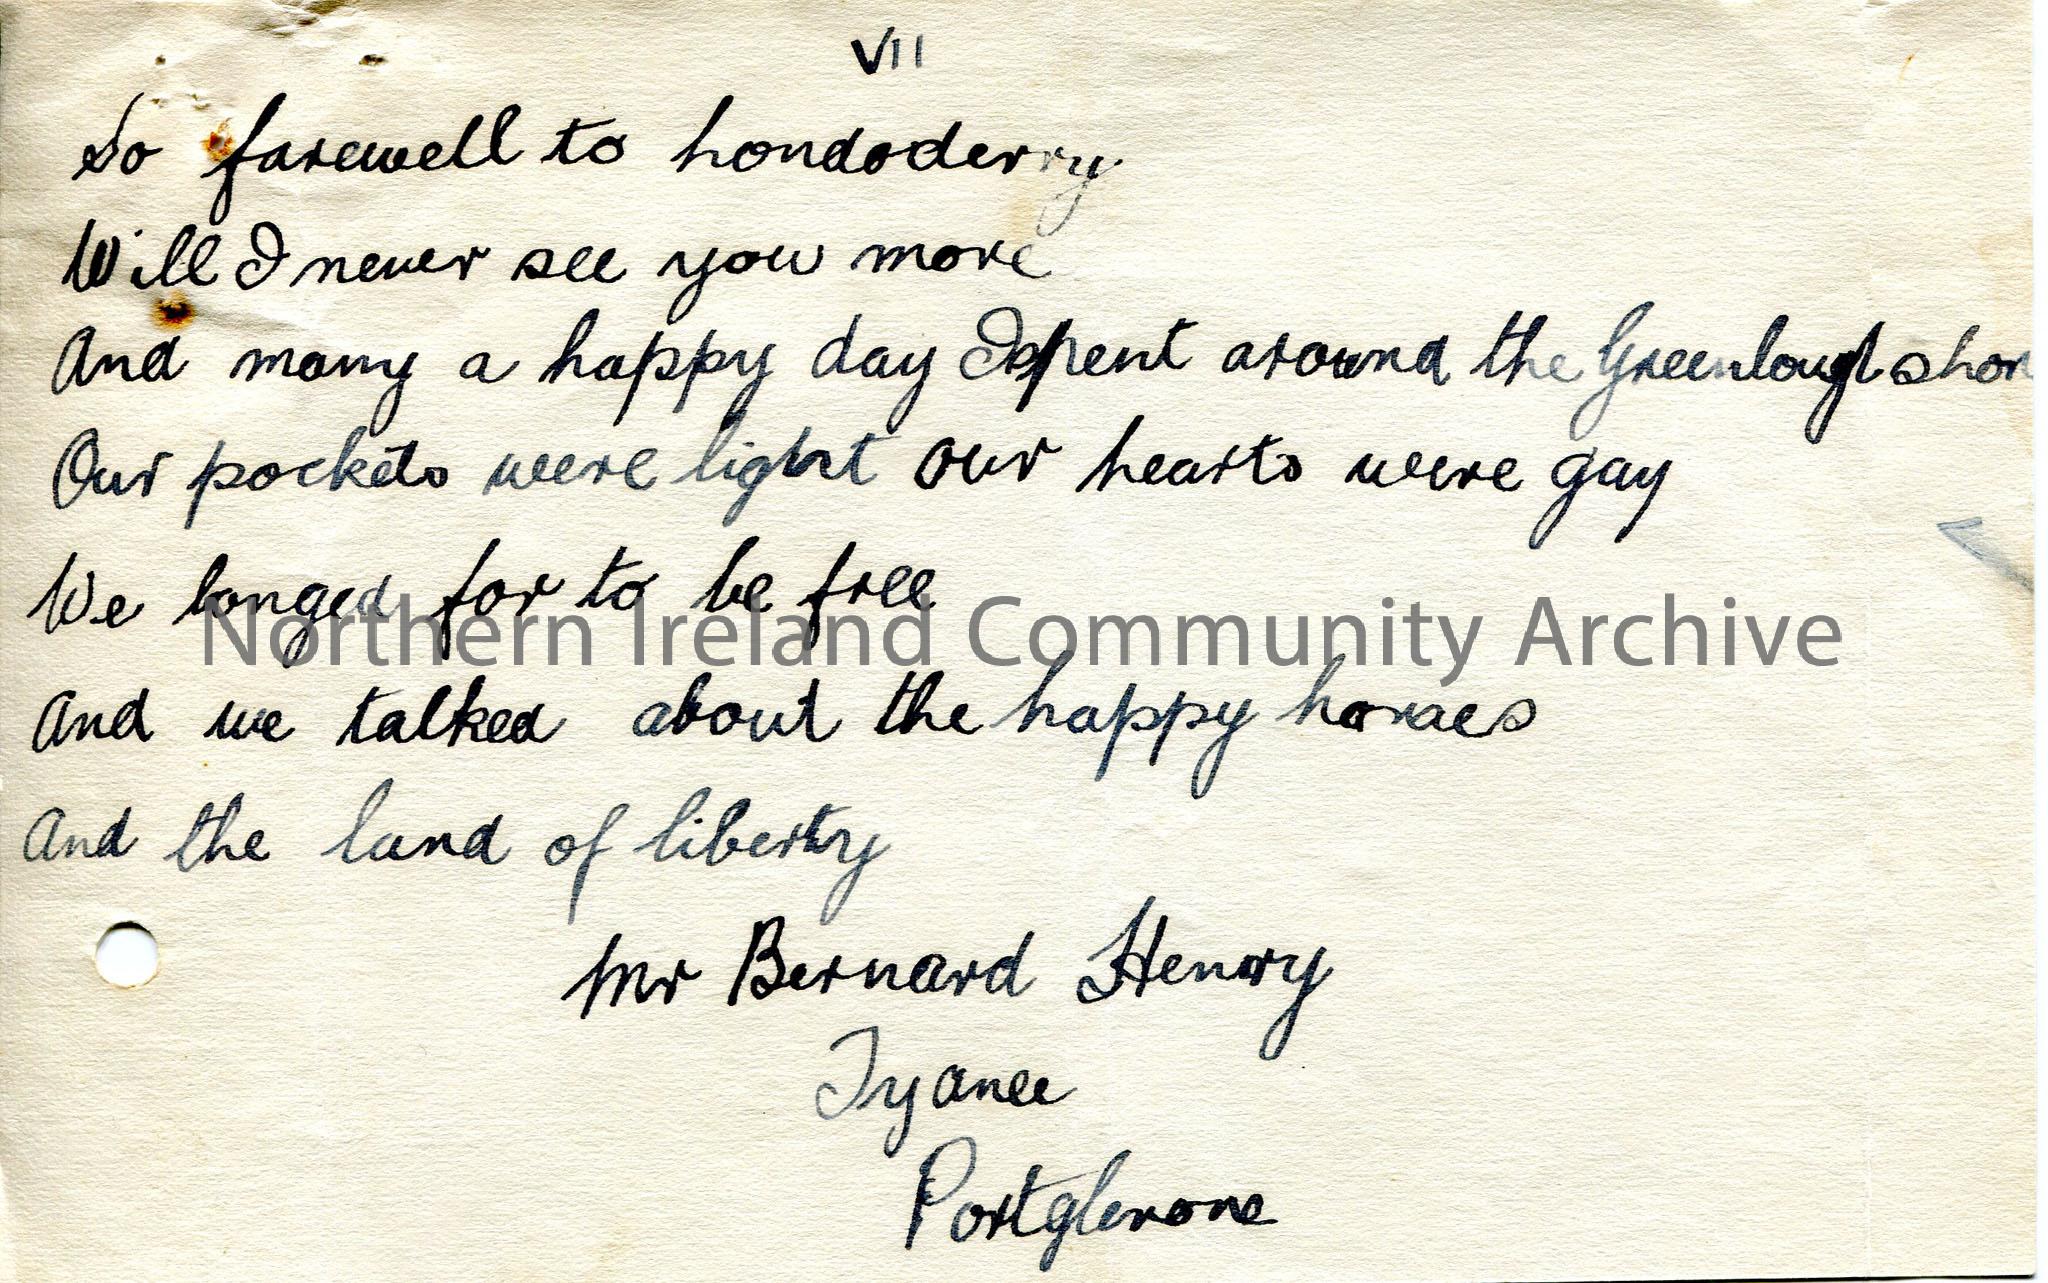 VII
So farewell to Londoderry
Will I never see you more
And many a happy day I spent around the Greenlough shor
Our pockets were light our hearts were gay
We longed for to be free
Northern Ireland Community Archive
And we talked about the happy homes
And the land of liberty
Mr Bernard Henry
Tyanee
Portglenone